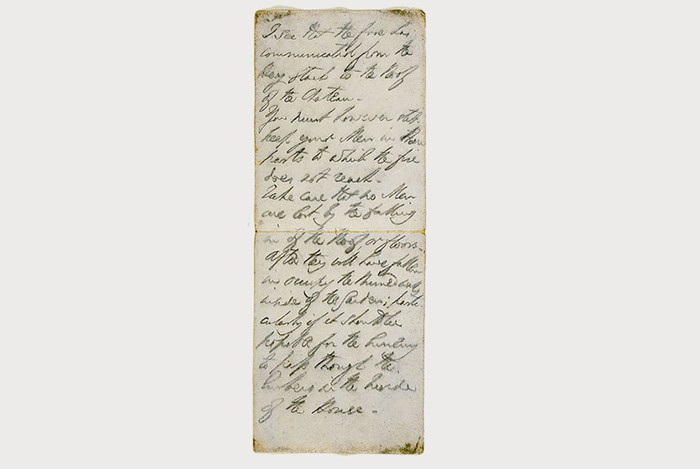 I see that the fire has
communicated from the
Hay Stack to the Roof
of the Chateau.
You must however still
keep your Men in those
parts to which the fire
does not reach.
Take care that no Men
are lost by the falling
in of the Roof, or floors.
After they will have fallen
in occupy the Ruined walls
inside of the Garden; parti
cularly if it should be
possible for the Enemy
to pass through the
Embers in the Inside
of the House.